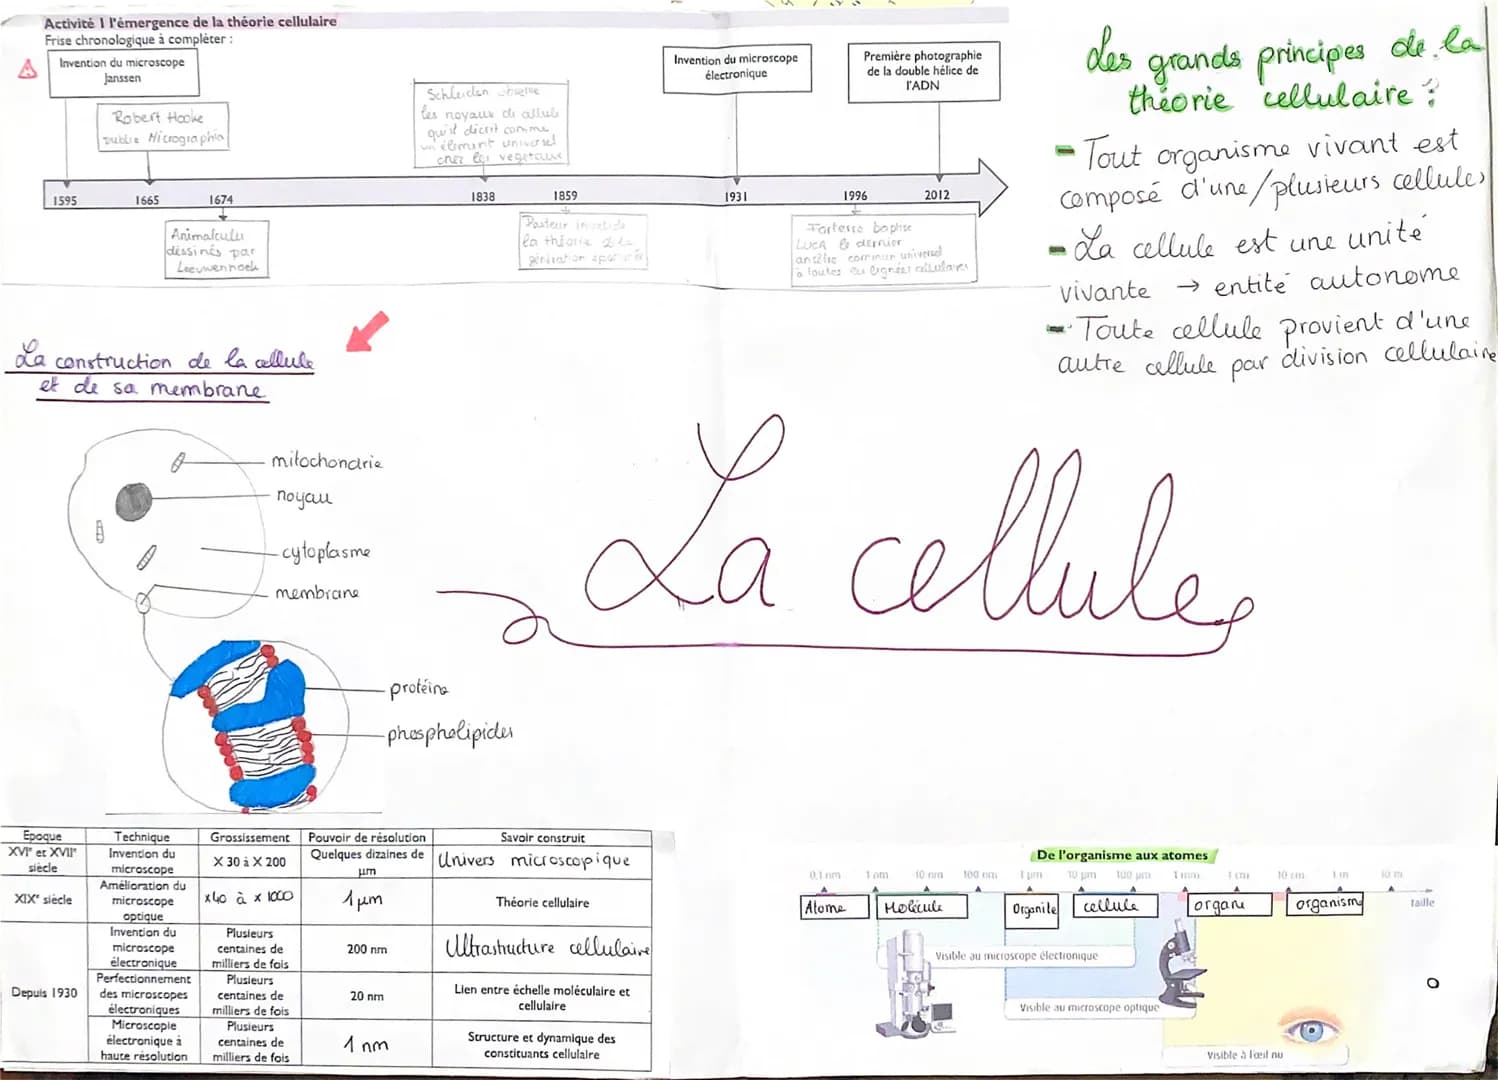 Activité 1 l'émergence de la théorie cellulaire
Frise chronologique à compléter :
Invention du microscope
Janssen
Robert Hooke
publie Micrographia
Schleiden observe
les noyaux de cellule
qu'il décrit comme
un élément universel
chez les végétaux
Invention du microscope
électronique
Première photographie
de la double hélice de
l'ADN
1595
1665
1674
1838
1859
1931
1996
2012
Animalcules
dessinés par
Leeuwennoek
Pasteur
la théorie de la
génération
Forterre baptise
LUCA le dernier
ancêtre commun universel
à toutes les lignées cellulaires
Les grands principes de la
théorie cellulaire :
- Tout organisme vivant est
composé d'une/plusieurs cellules
- La cellule est une unité
vivante → entité autonome
- Toute cellule provient d'une
autre cellule par division cellulaire
La construction de la cellule
et de sa membrane
mitochondrie
noyau
cytoplasme
membrane
protéine
phospholipides
La cellule
Epoque Technique Grossissement Pouvoir de résolution Savoir construit
XVIe et XVIIe siècle
Invention du microscope
X 30 à X 200
Quelques dizaines de µm
Univers microscopique
XIXe siècle
Amélioration du microscope optique
x40 à x 1000
1 µm
Théorie cellulaire
Depuis 1930
Invention du microscope électronique
Plusieurs centaines de milliers de fois
200 nm
Ultrastructure cellulaire
Perfectionnement des microscopes électroniques
Plusieurs centaines de milliers de fois
20 nm
Lien entre échelle moléculaire et cellulaire
Microscopie électronique à haute résolution
Plusieurs centaines de milliers de fois
1 nm
Structure et dynamique des constituants cellulaire
De l'organisme aux atomes
0,1 nm 1 nm 10 nm 100 nm 1 µm 10 µm 100 µm 1 mm 1 cm 10 cm 1 m 10 m
taille
Atome
Molécule
Organite
cellule
organe
organisme
Visible au microscope électronique
Visible au microscope optique
Visible à l'œil nu